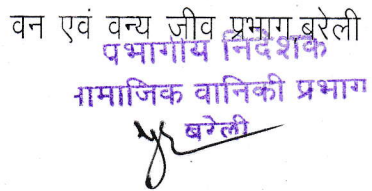 वन एवं वन्य जीव प्रभाग बरेली
पभागीय निदेशक
ामाजिक वानिकी प्रभाग
बरेली